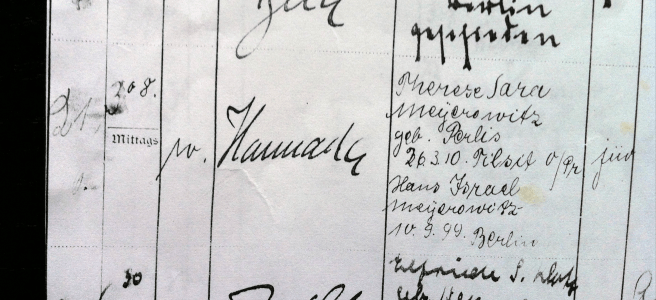 Berlin
geschieden
21.
208.
Mittags
w.
Hannacha
Therese Sara
Meyerowitz
geb. Perlis
26.3.10. Tilsit O/Pr
jüd
Hans Israel
Meyerowitz
10.9.99. Berlin
30